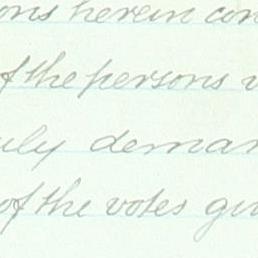 ons herein con
of the persons v
uly deman
of the votes giv